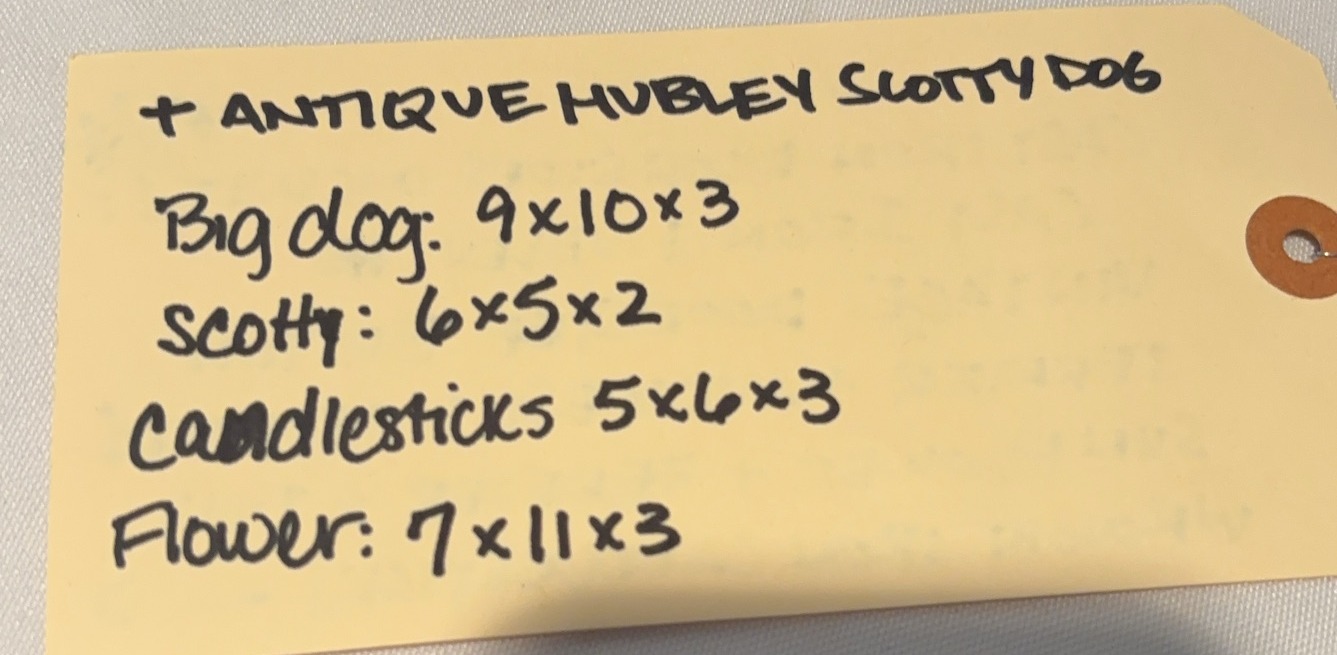 + ANTIQUE HUBLEY SCOTTY DOG
Big dog: 9x10x3
Scotty: 6x5x2
Candlesticks 5x6x3
Flower: 7x11x3